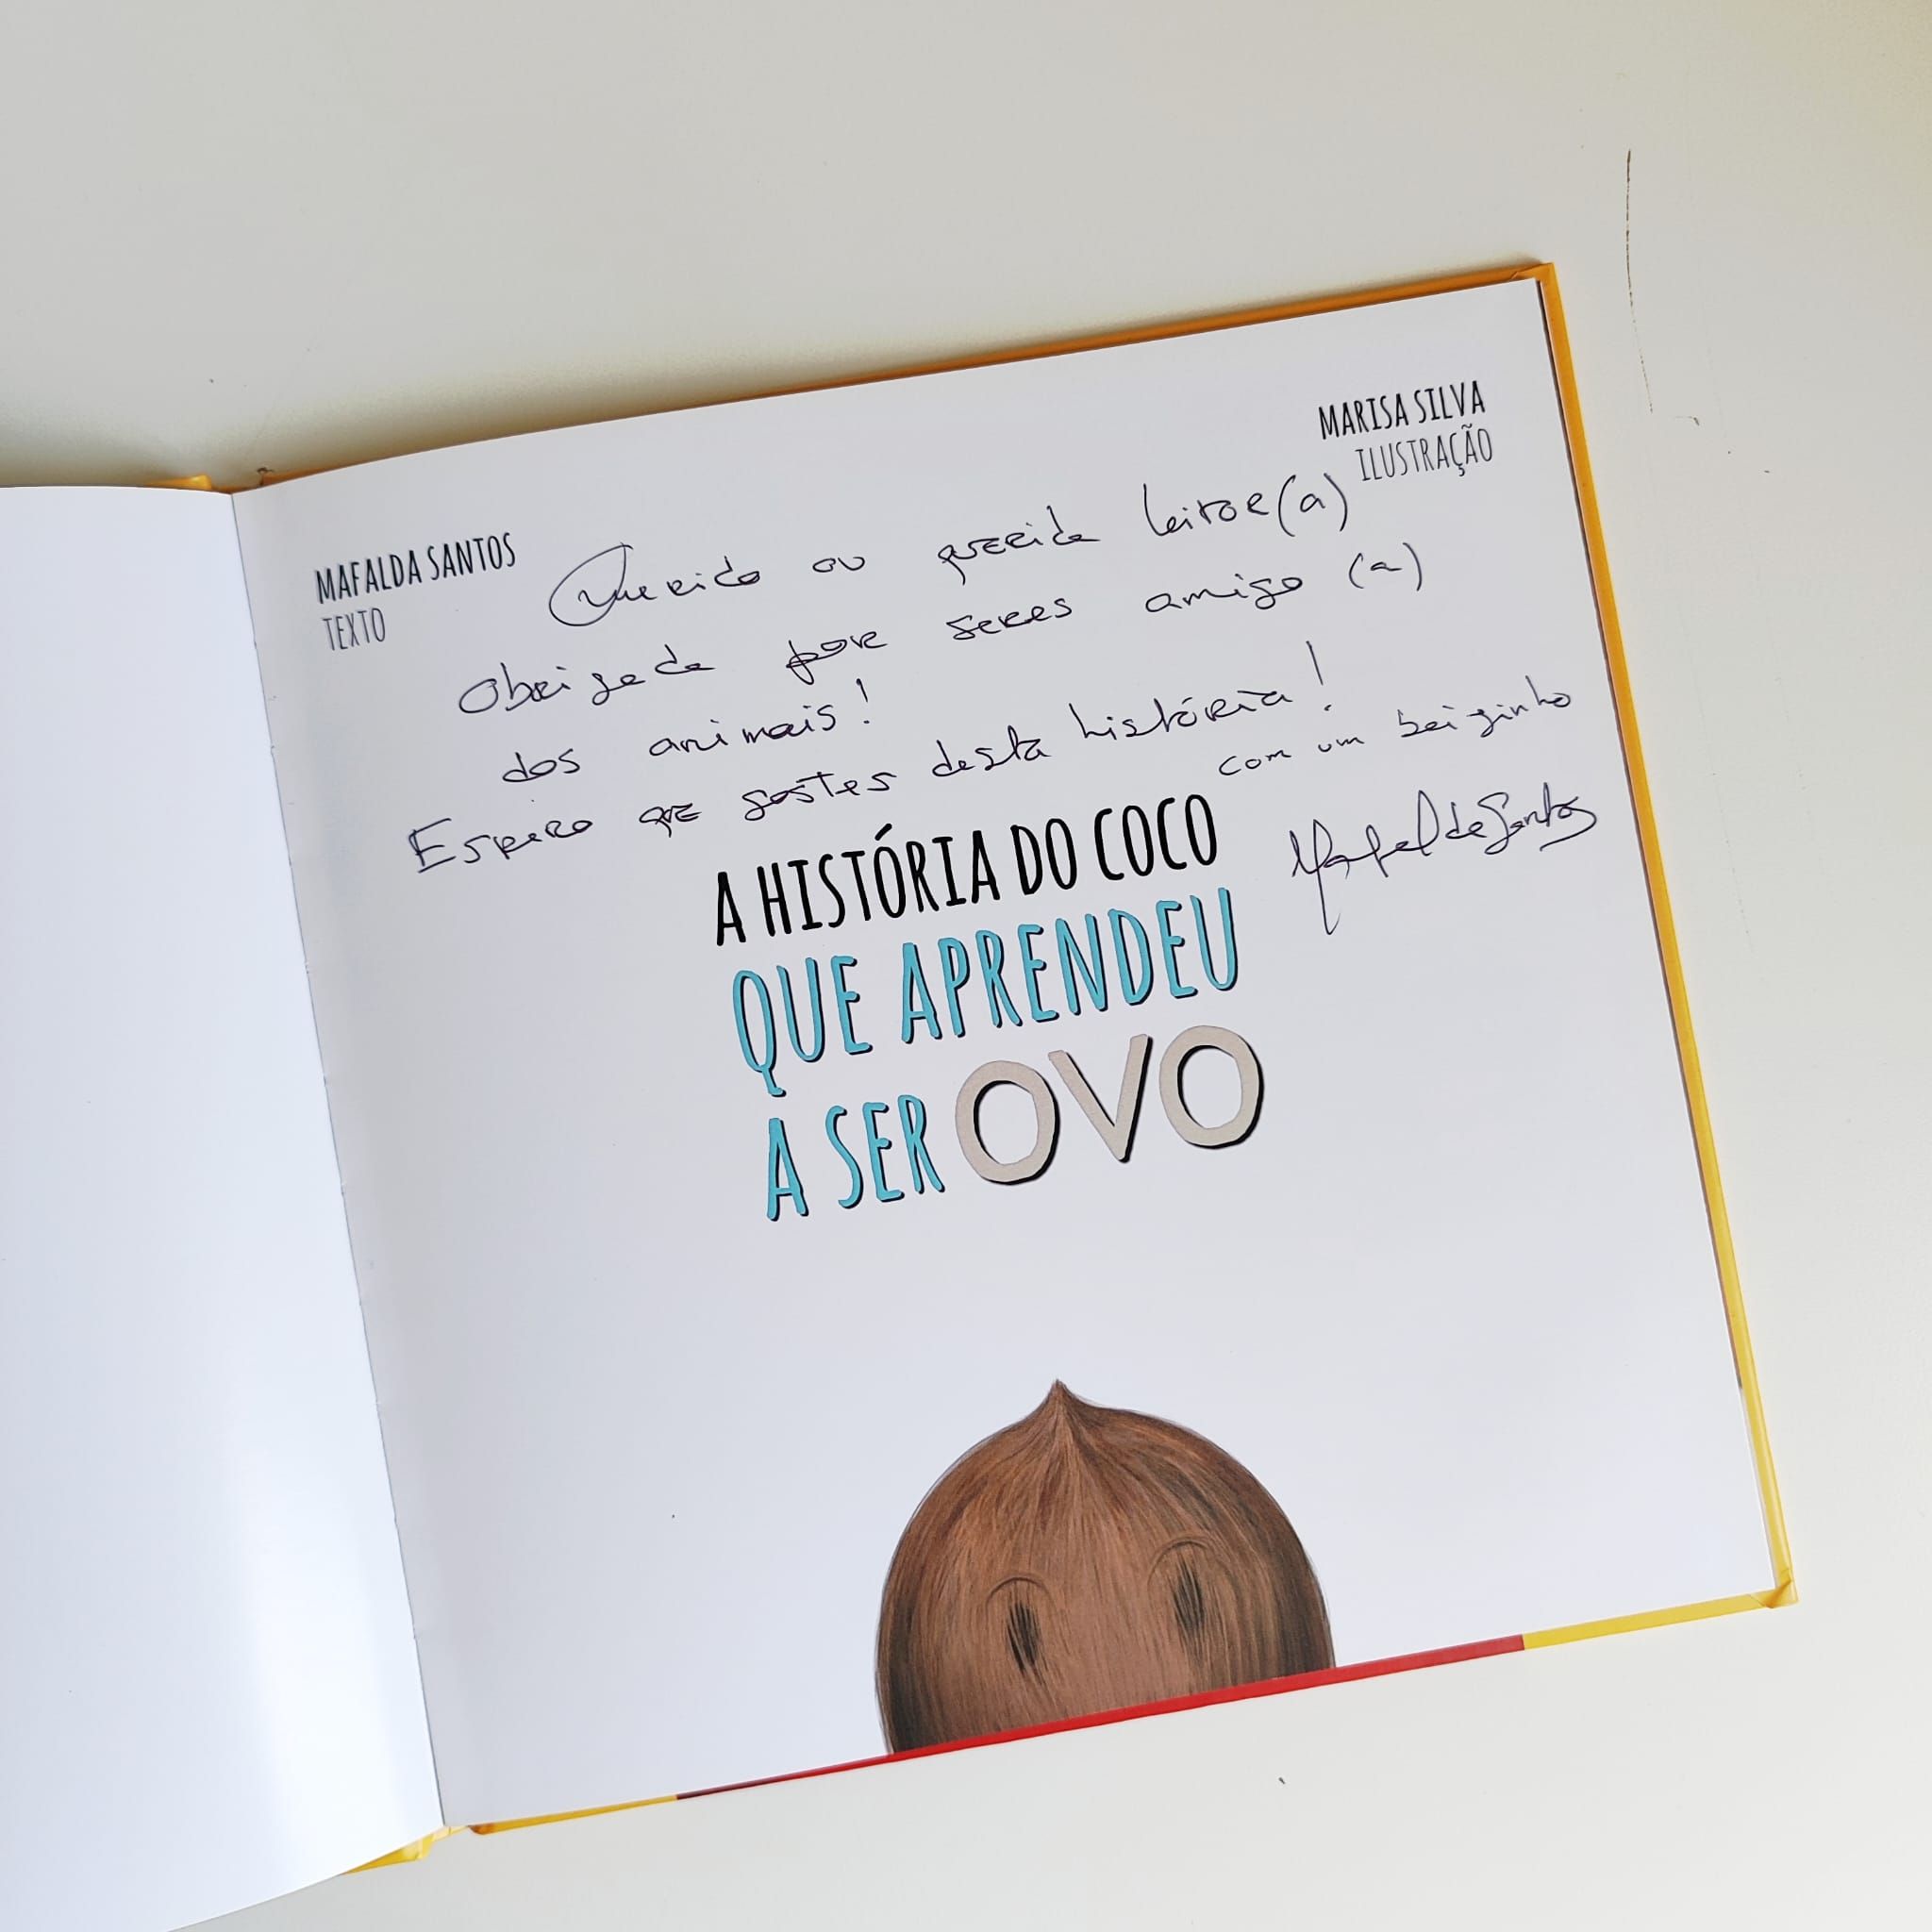 MARISA SILVA
ILUSTRAÇÃO
MAFALDA SANTOS
TEXTO
Querido ou querida leitor(a)
Obrigada por seres amigo (a)
dos animais!
Espero que gostes desta história!
com um beijinho
Mafalda Santos
A HISTÓRIA DO COCO
QUE APRENDEU
A SER OVO